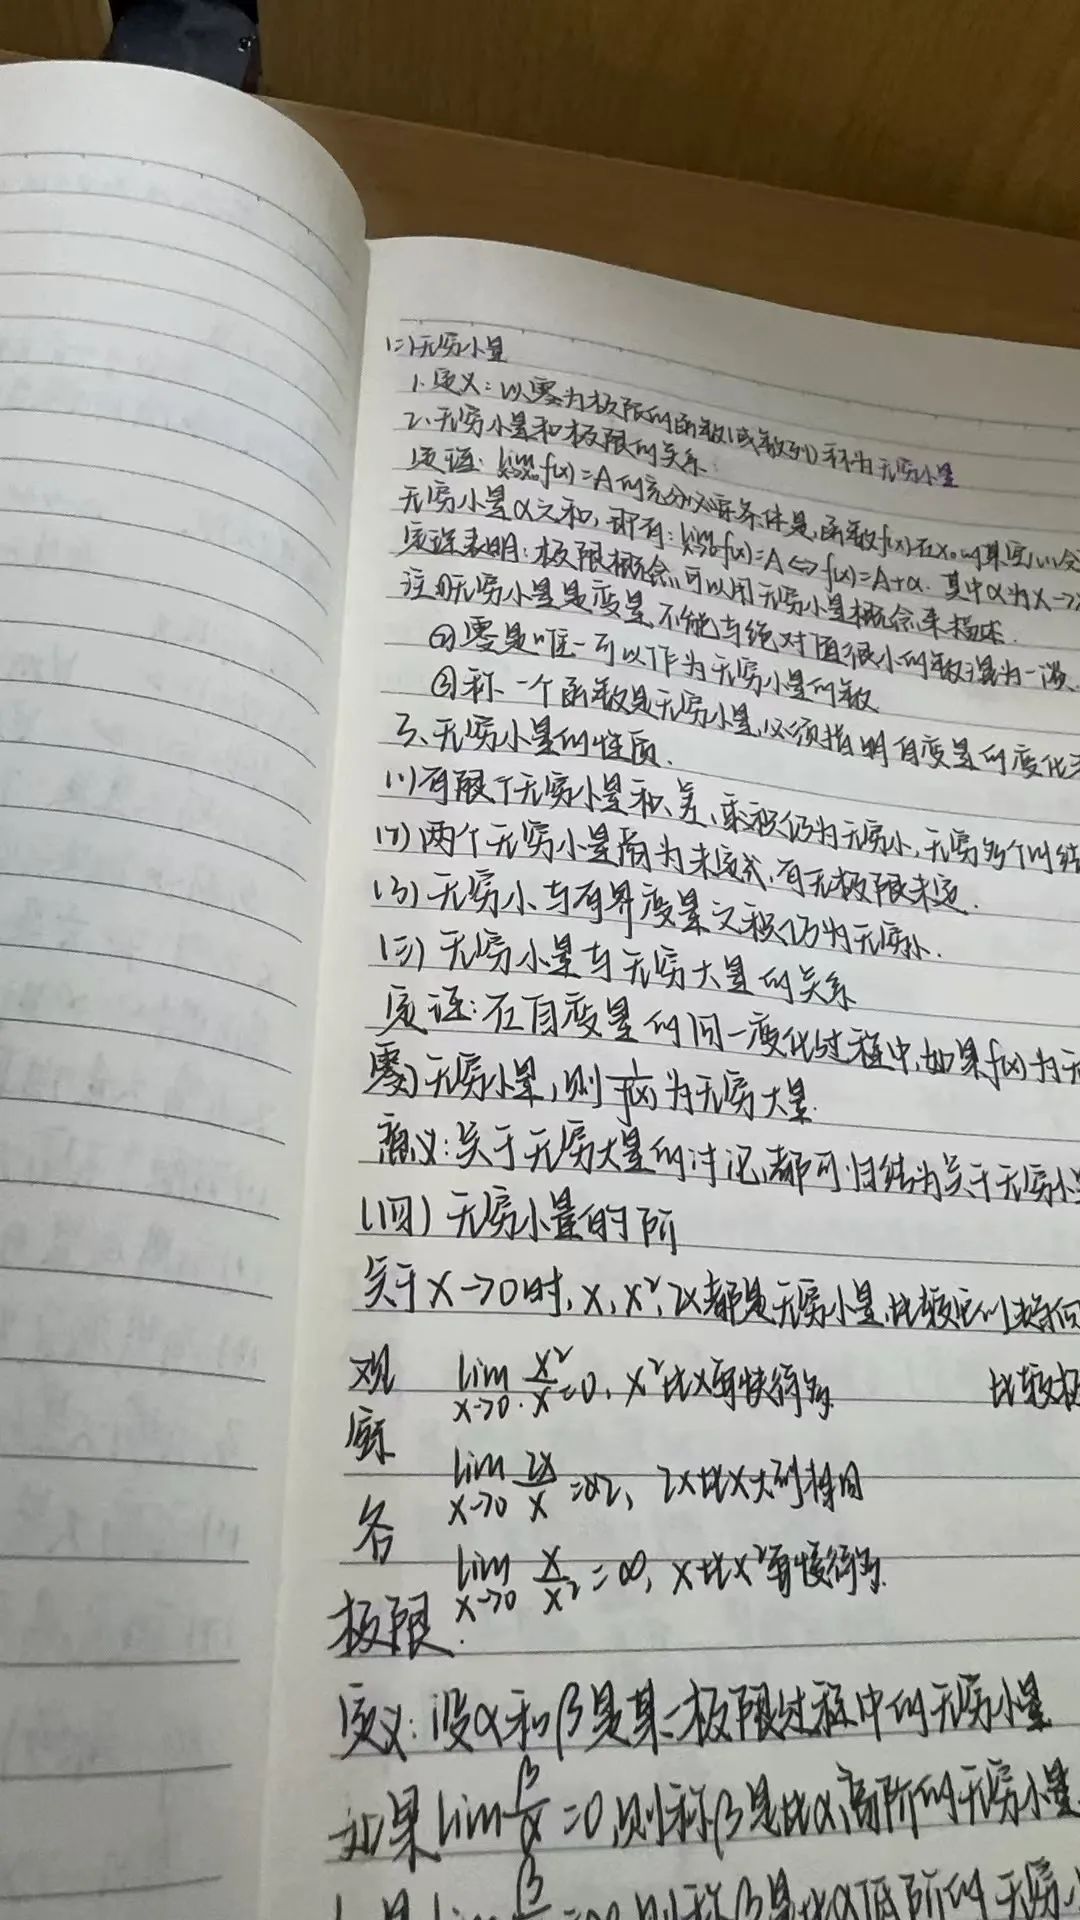 (二)无穷小量
1.定义:以零为极限的函数(或数列)称为无穷小量
2.无穷小量和极限的关系
定理:lim f(x)=A的充分必要条件是,函数f(x)在x₀的某
无穷小量α之和,即有:lim f(x)=A⇔f(x)=A+α.其中α为x→
定理表明:极限概念,可以用无穷小量概念来描述.
注①无穷小量是变量,不能与绝对值很小的数混为一谈.
②零是唯一可以作为无穷小量的数
③称一个函数是无穷小量,必须指明自变量的变化
3.无穷小量的性质.
(1)有限个无穷小量和、差、乘积仍为无穷小,无穷多个的结
(2)两个无穷小量商为未定式,有无极限未定.
(3)无穷小与有界变量之积仍为无穷小.
(三)无穷小量与无穷大量的关系
定理:在自变量的同一变化过程中,如果f(x)为无
零)无穷小量,则1/f(x)为无穷大量.
意义:关于无穷大量的讨论,都可归结为关于无穷小量
(四)无穷小量的阶
关于x→0时,x,x²,2x都是无穷小量,比较它们
观 lim x→0 x²/x=0,x²比x要快得多 比较极
察 lim x→0 2x/x=2,2x比x大列相同
各 lim x→0 x/x²=∞,x比x²要慢得多
极限.
定义:设α和β是某一极限过程中的无穷小量
如果lim β/α=0,则称β是比α高阶的无穷小量
如果lim β/α=∞,则称β是比α低阶的无穷小